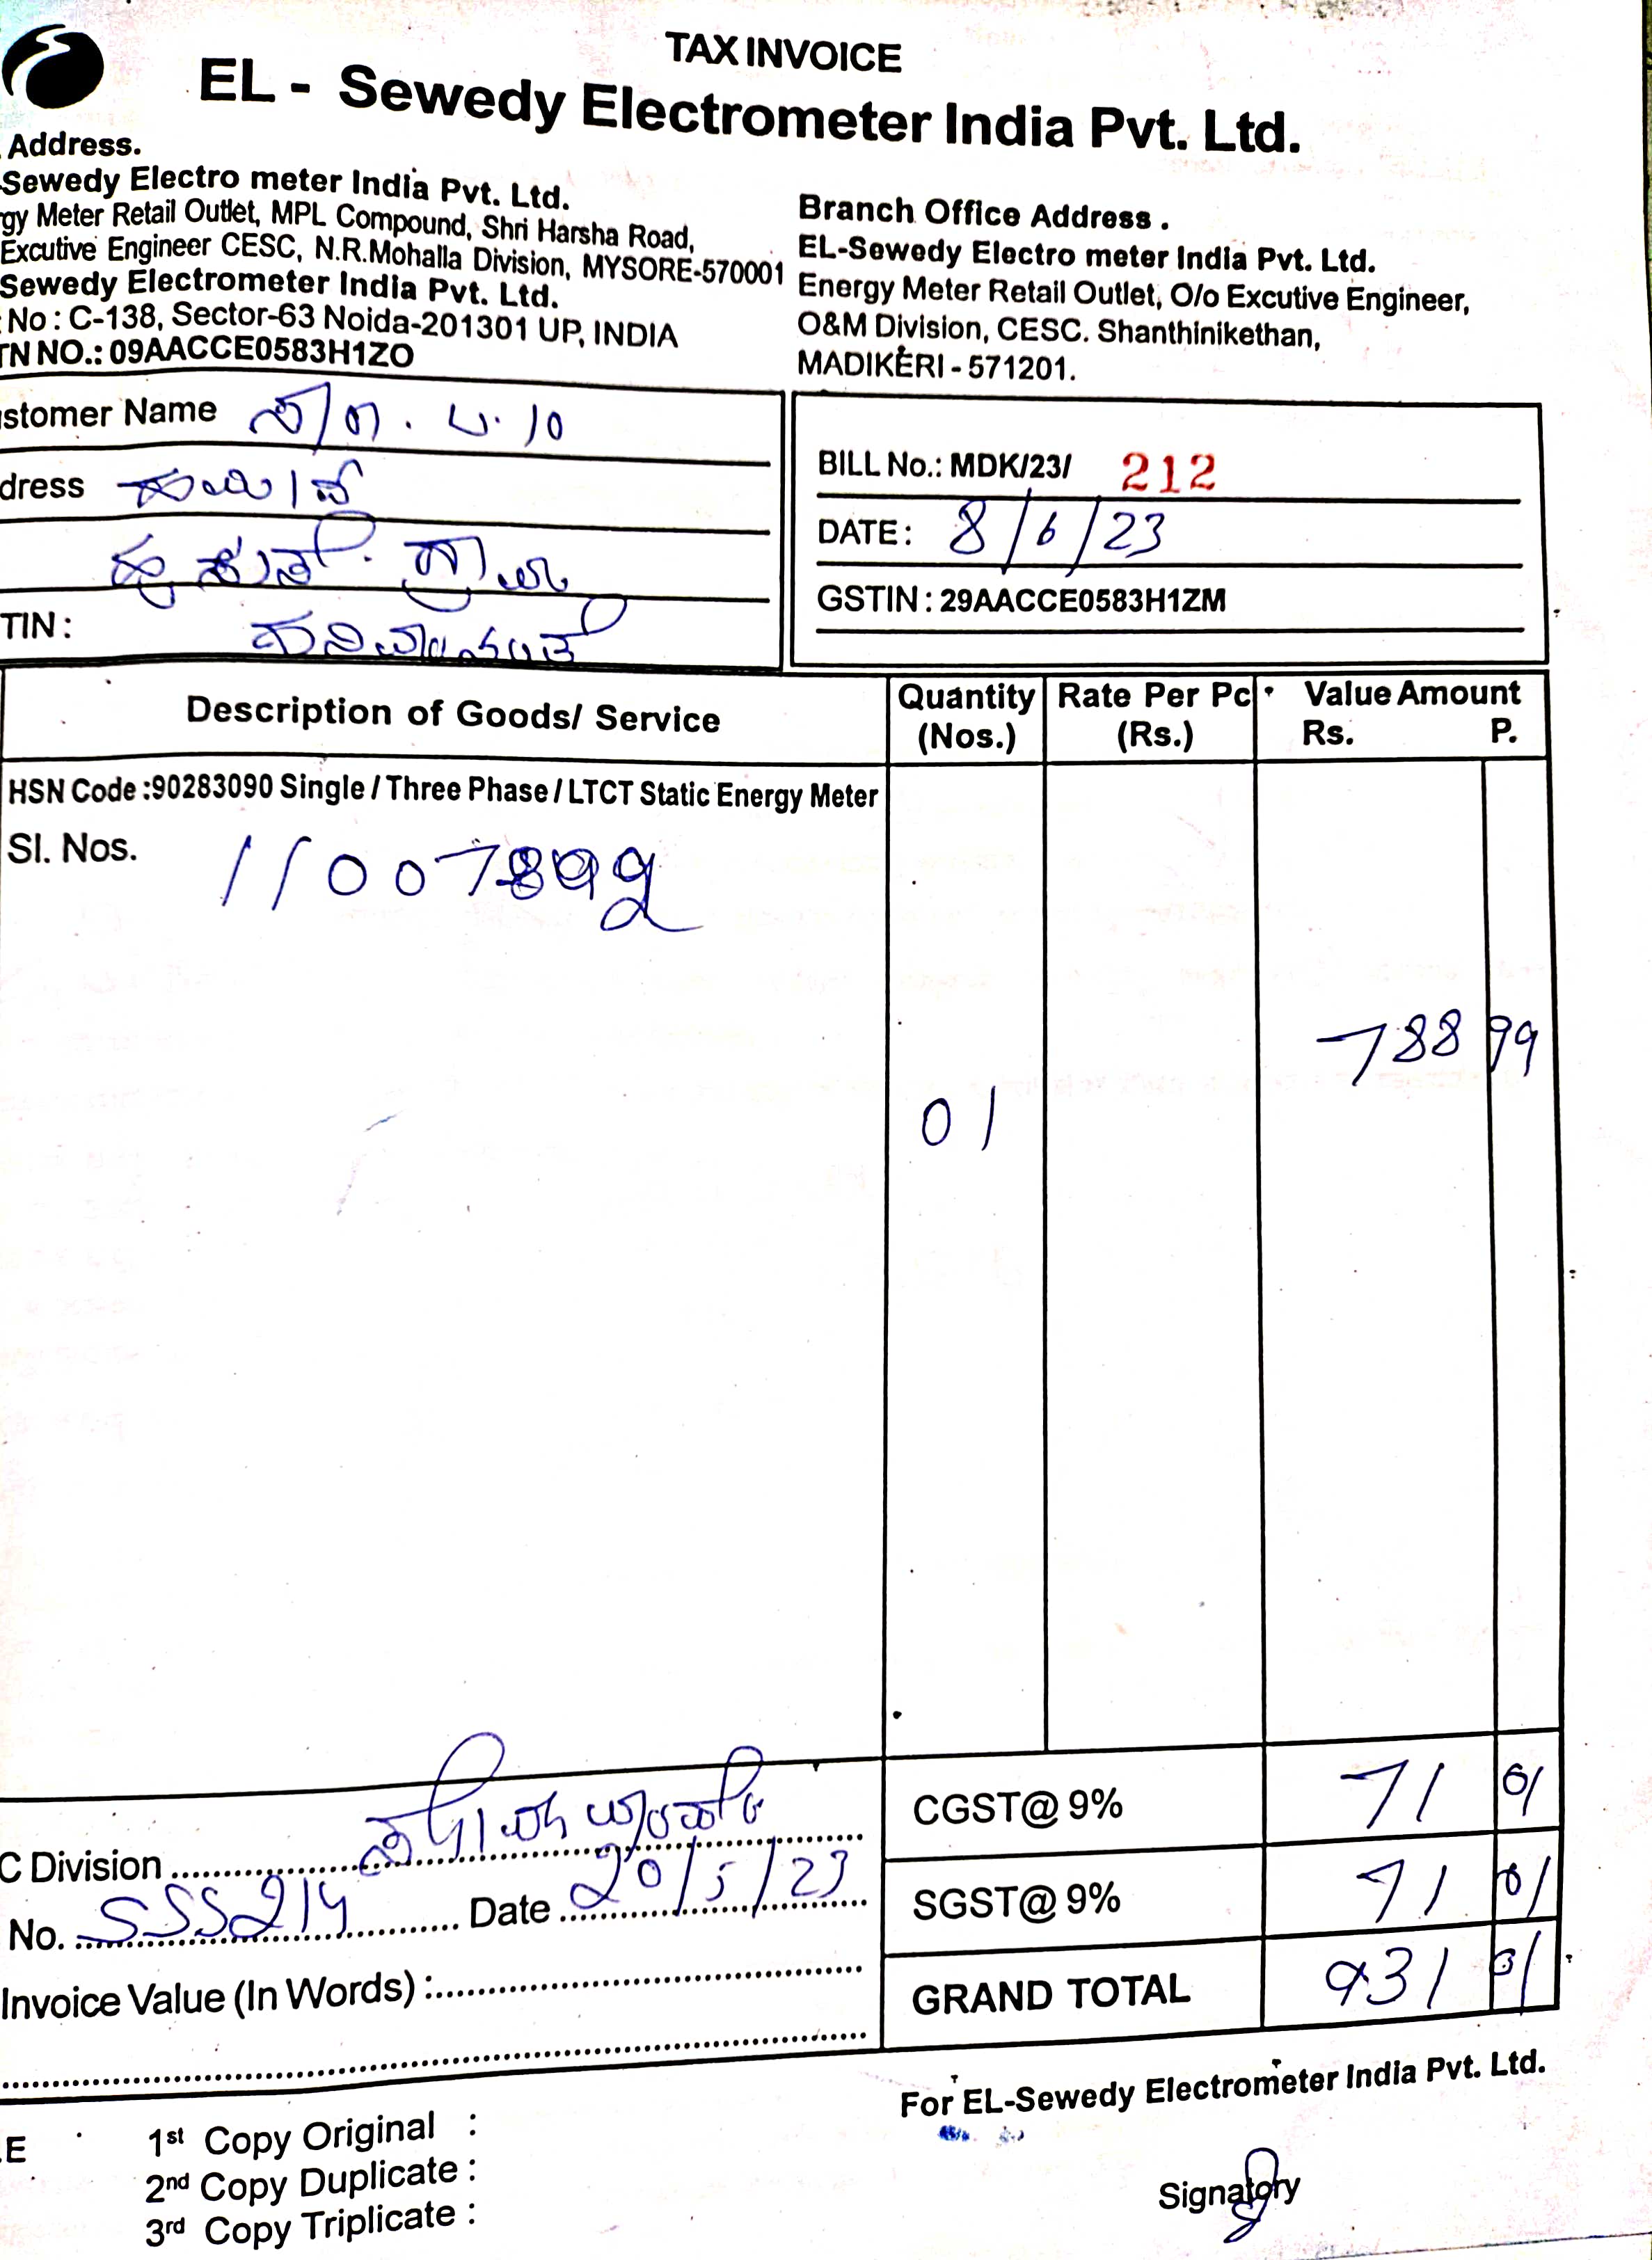 TAX INVOICE
EL - Sewedy Electrometer India Pvt. Ltd.
Address.
Sewedy Electro meter India Pvt. Ltd.
gy Meter Retail Outlet, MPL Compound, Shri Harsha Road,
Excutive Engineer CESC, N.R.Mohalla Division, MYSORE-570001
Sewedy Electrometer India Pvt. Ltd.
No : C-138, Sector-63 Noida-201301 UP, INDIA
TN NO.: 09AACCE0583H1ZO
Branch Office Address .
EL-Sewedy Electro meter India Pvt. Ltd.
Energy Meter Retail Outlet, O/o Excutive Engineer,
O&M Division, CESC. Shanthinikethan,
MADIKERI - 571201.
stomer Name
dress
TIN :
BILL No.: MDK/23/ 212
DATE : 8/6/23
GSTIN : 29AACCE0583H1ZM
Description of Goods/ Service Quantity (Nos.) Rate Per Pc (Rs.) Value Amount Rs. P.
HSN Code :90283090 Single / Three Phase / LTCT Static Energy Meter
Sl. Nos.
788 99
01
CGST@ 9% 71 01
C Division
SGST@ 9% 71 01
No. SSS214 Date 20/5/23
Invoice Value (In Words) :
GRAND TOTAL 931 01
For EL-Sewedy Electrometer India Pvt. Ltd.
E
1st Copy Original :
2nd Copy Duplicate :
3rd Copy Triplicate :
Signatory